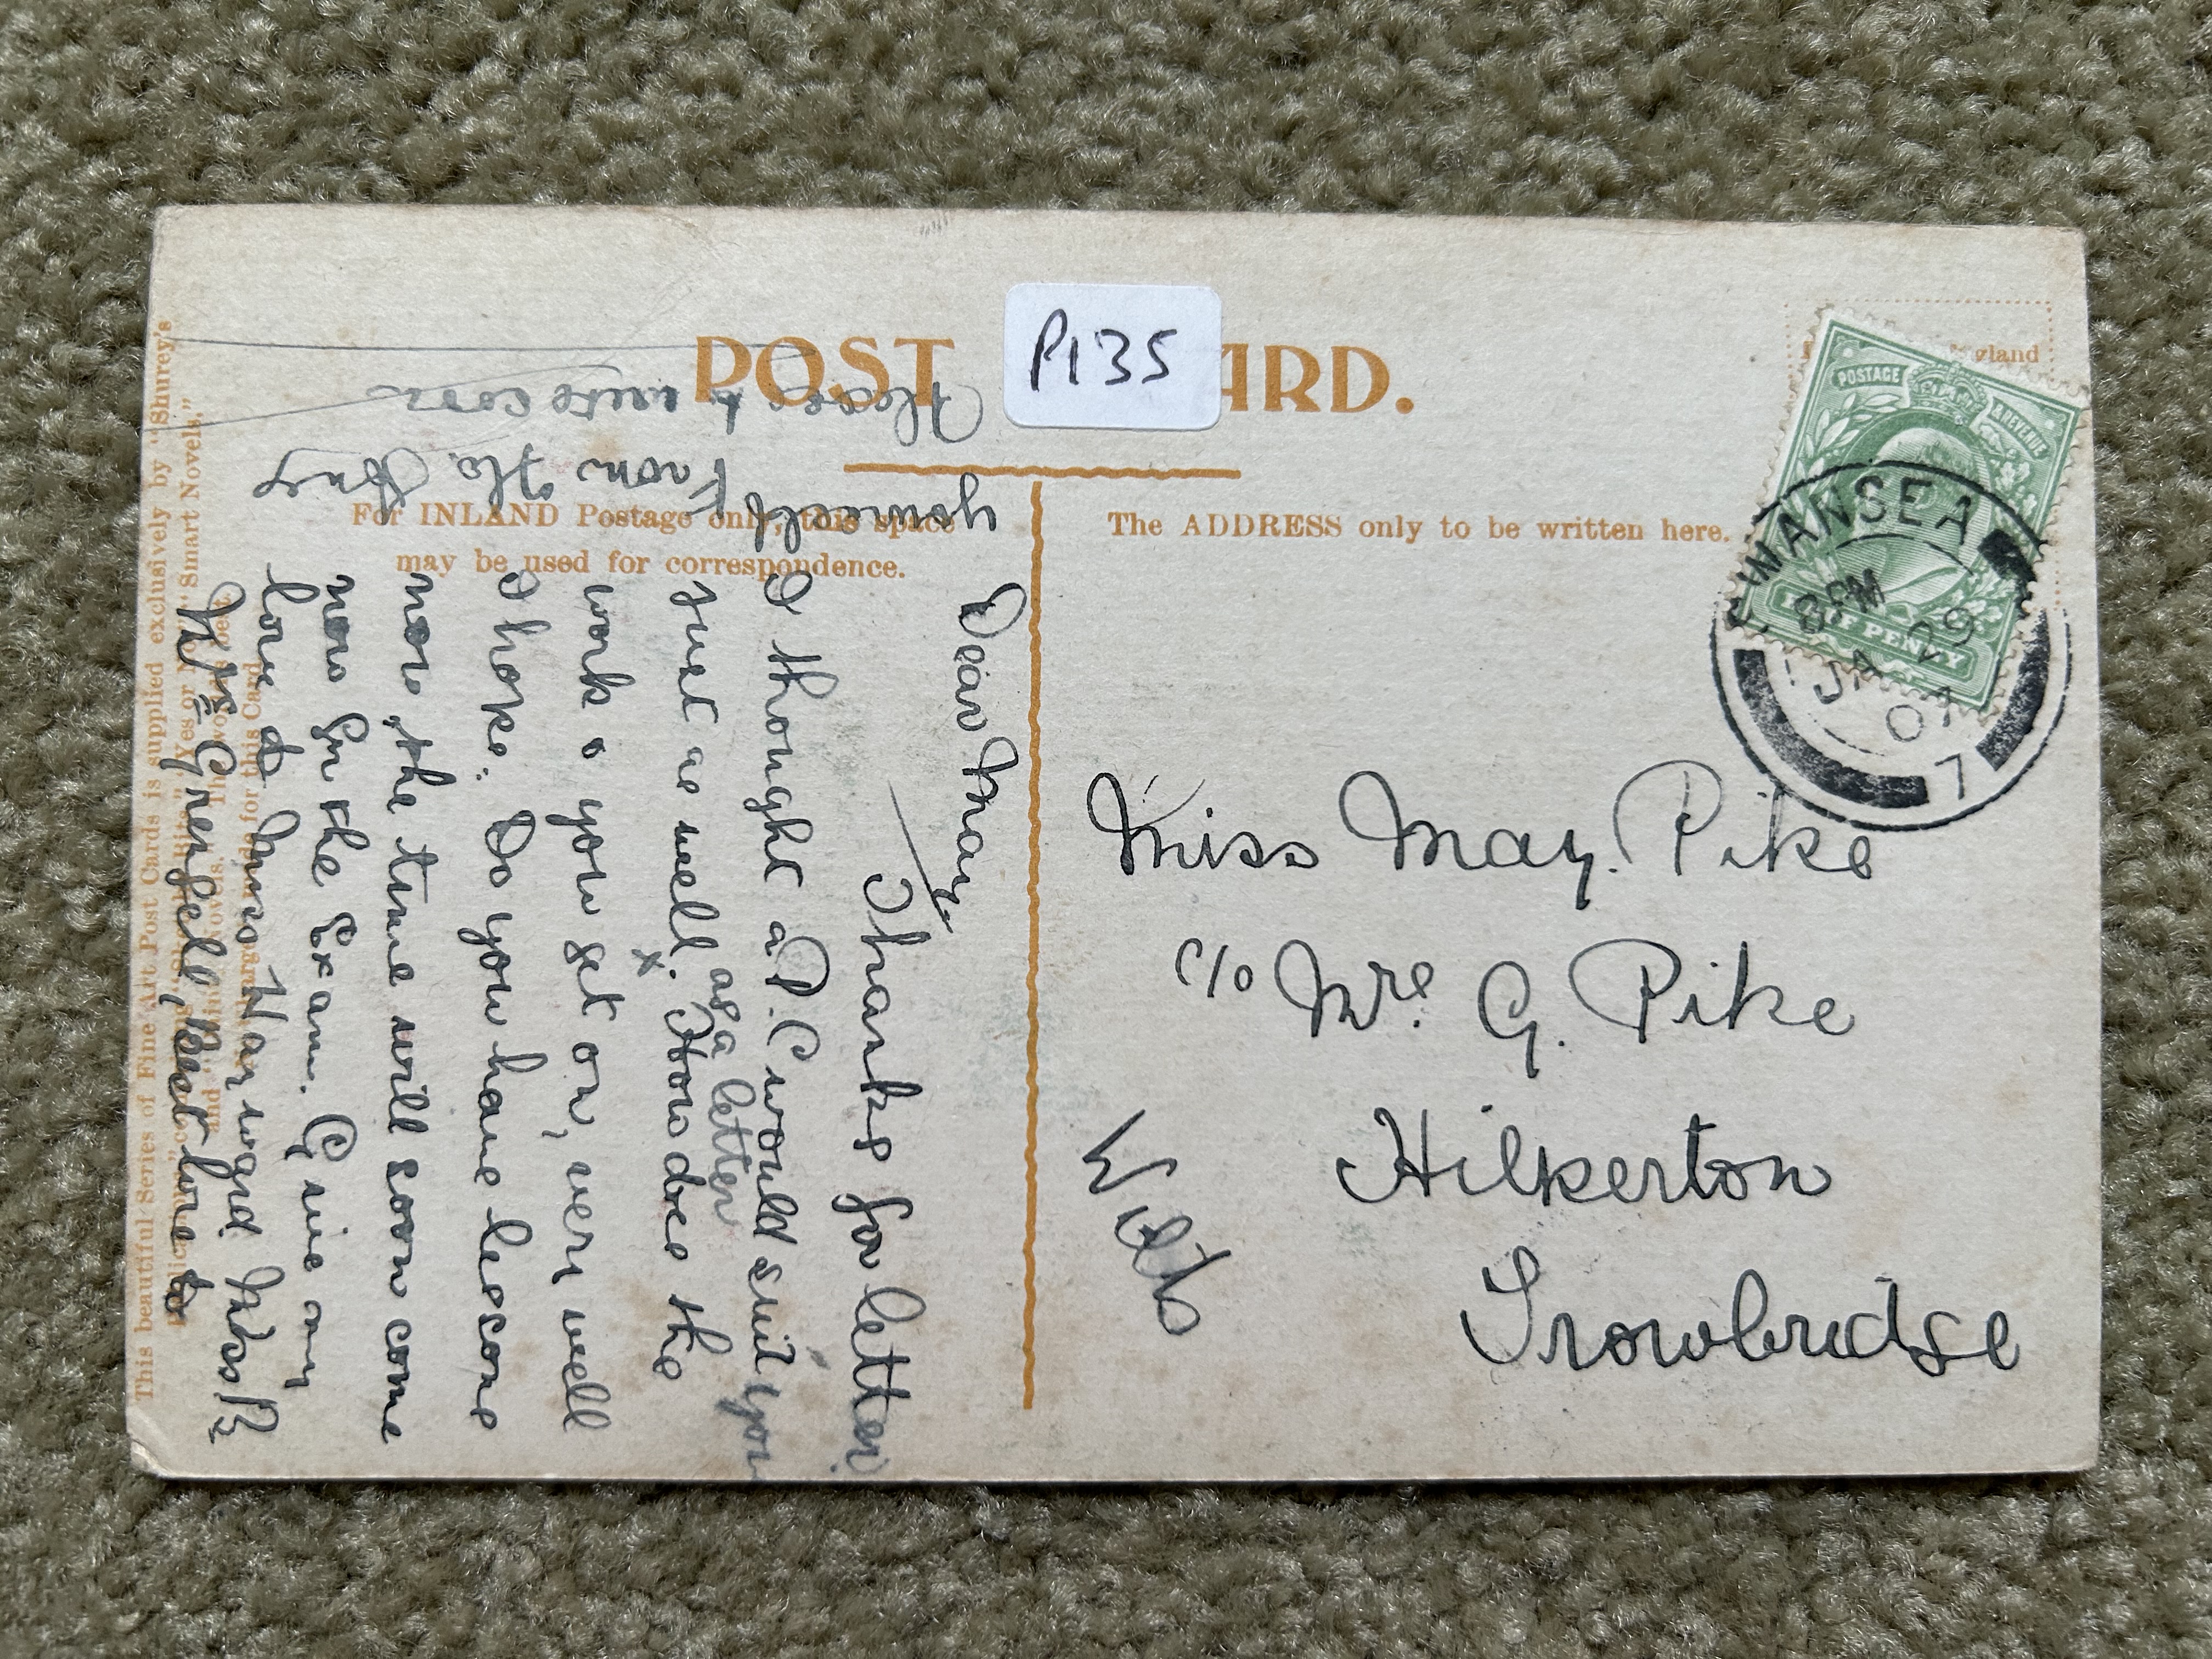 POST CARD.
P135
For INLAND Postage only, this space
may be used for correspondence.
The ADDRESS only to be written here.
POSTAGE & REVENUE
HALF PENNY
SWANSEA
8 PM
JA 29
07
7
Miss May. Pike
c/o Mrs. G. Pike
Hilperton
Trowbridge
Wilts
Dear May
Thanks for letter
I thought a P.C would suit you
just as well. x How does the
as a letter
work & you get on, very well
I hope. Do you have lessons
now, the time will soon come
now for the Exam. Give my
love to Miss Harward Miss P,
Mrs Grensell, Best love to
yourself From Flo.
Please to write soon
This beautiful Series of Fine Art Post Cards is supplied exclusively by "Shurey's